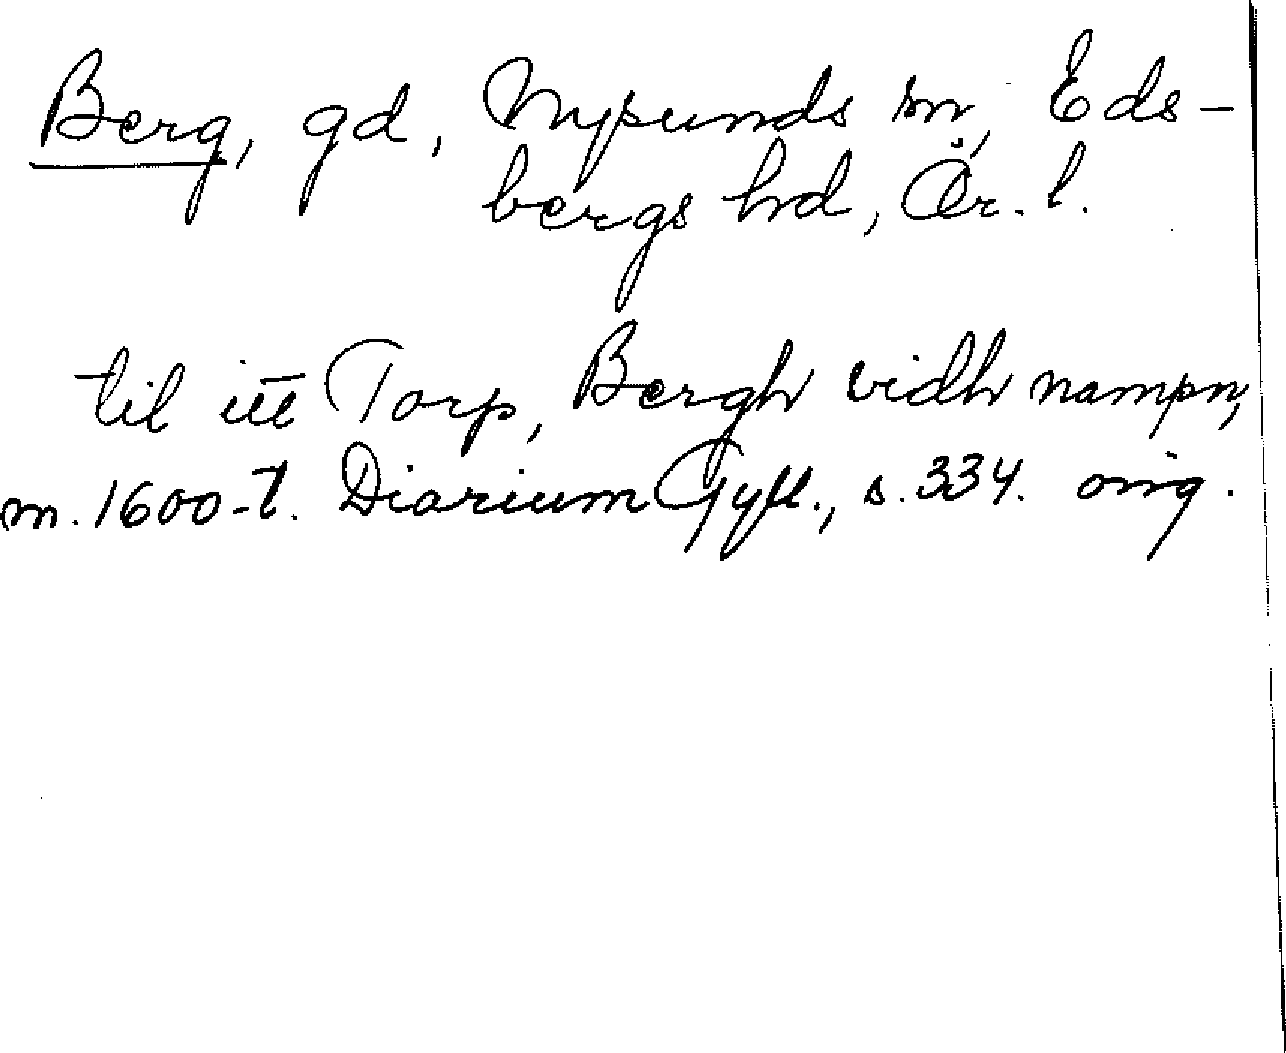 Berg, gd, Nysunds sn, Eds-
bergs hd, Ör. l.
til itt Torp, Bergh vidh nampn,
m. 1600-t. Diarium Gyll., s. 334. orig.